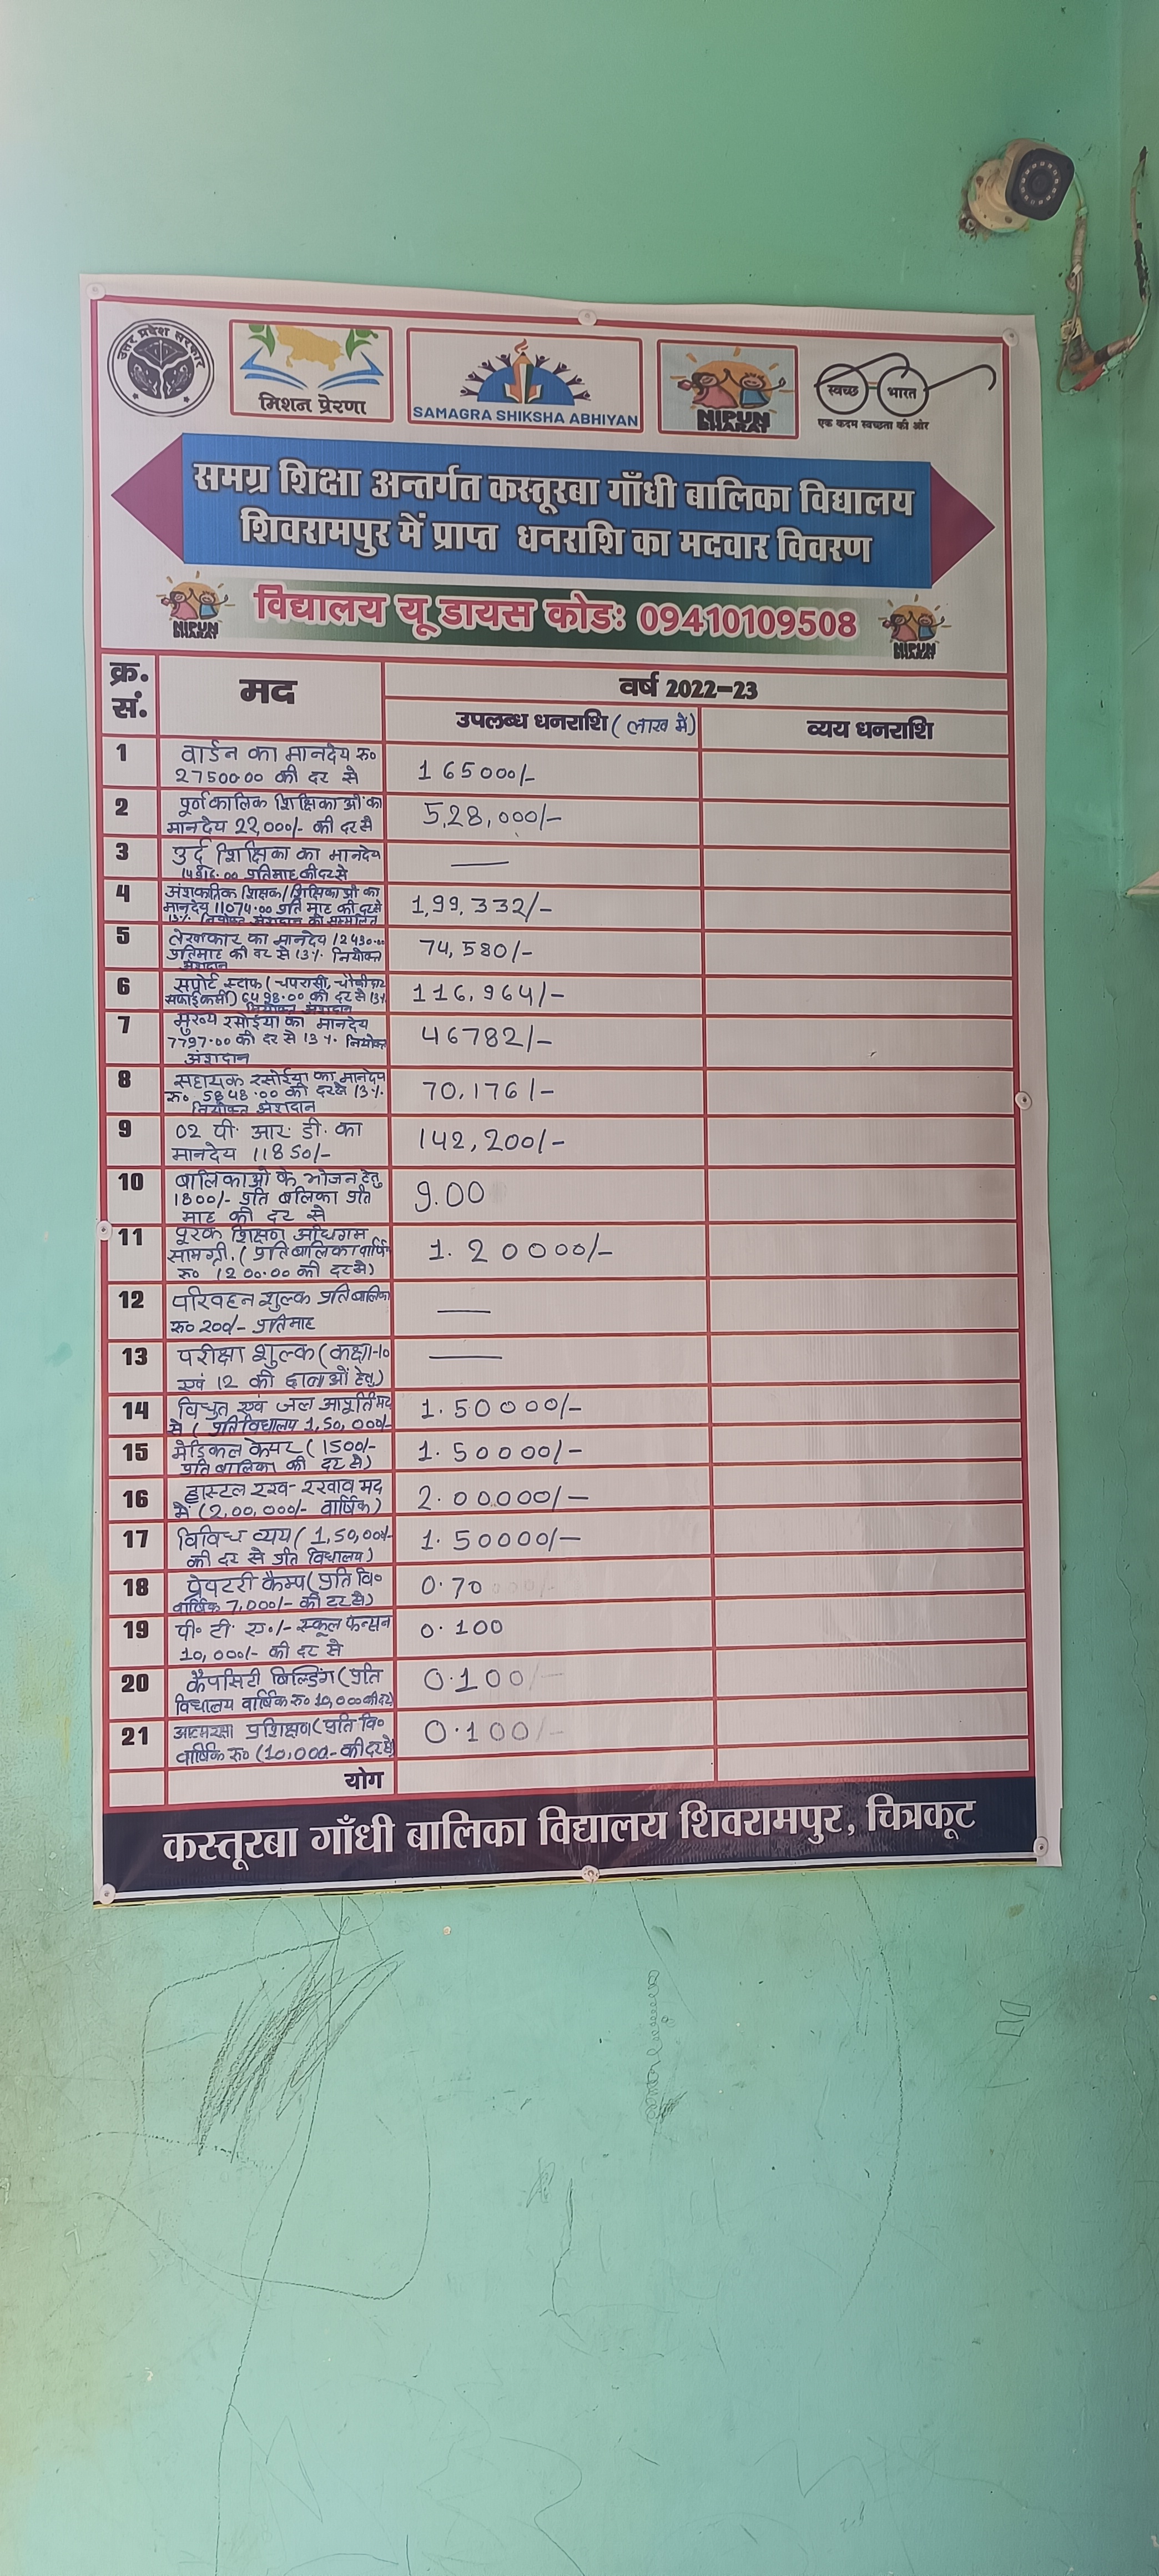 उत्तर प्रदेश सरकार
मिशन प्रेरणा
SAMAGRA SHIKSHA ABHIYAN
NIPUN
BHARAT
स्वच्छ भारत
एक कदम स्वच्छता की ओर
समग्र शिक्षा अन्तर्गत कस्तूरबा गाँधी बालिका विद्यालय
शिवरामपुर में प्राप्त धनराशि का मदवार विवरण
NIPUN
BHARAT
विद्यालय यू डायस कोडः 09410109508
NIPUN
BHARAT
क्र.
सं.
मद
वर्ष 2022-23
उपलब्ध धनराशि (लाख में)
व्यय धनराशि
1
वार्डन का मानदेय रु०
27500.00 की दर से
165000/-
2
पूर्णकालिक शिक्षिकाओं का
मानदेय 22,000/- की दर से
5,28,000/-
3
उर्दू शिक्षिका का मानदेय
प्रतिमाह की दर से
—
4
अंशकालिक शिक्षक/शिक्षिकाओं का
मानदेय 11074.00 प्रति माह की दर से
13% नियोक्ता अंशदान को सम्मिलित
1,99,332/-
5
लेखाकार का मानदेय 12430.00
प्रतिमाह की दर से 13% नियोक्ता
अंशदान
74,580/-
6
सपोर्ट स्टाफ (चपरासी, चौकीदार
सफाईकर्मी) 6498.00 की दर से 13%
नियोक्ता अंशदान
116,964/-
7
मुख्य रसोईया का मानदेय
7797.00 की दर से 13% नियोक्ता
अंशदान
46782/-
8
सहायक रसोईया का मानदेय
रु० 5848.00 की दर से 13%
नियोक्ता अंशदान
70,176/-
9
02 पी. आर. डी. का
मानदेय 11850/-
142,200/-
10
बालिकाओं के भोजन हेतु
1800/- प्रति बलिका प्रति
माह की दर से
9.00
11
पूरक शिक्षण अधिगम
सामग्री. (प्रति बालिका वार्षि
रू० 1200.00 की दर से)
1.20000/-
12
परिवहन शुल्क प्रति बालिका
रु० 200/- प्रतिमाह
—
13
परीक्षा शुल्क (कक्षा-10
एवं 12 की छात्राओं हेतु)
—
14
विधुत एवं जल आपूर्ति मद
से (प्रति विद्यालय 1,50,000/-
1.50000/-
15
मेडिकल केयर (1500/-
प्रति बालिका की दर से)
1.50000/-
16
हास्टल रख-रखाव मद
में (2,00,000/- वार्षिक)
2.00000/-
17
विविध व्यय (1,50,000/-
की दर से प्रति विद्यालय)
1.50000/-
18
प्रेपटरी कैम्प (प्रति वि०
वार्षिक 7,000/- की दर से)
0.70
19
पी. टी. ए./- स्कूल फन्सन
10,000/- की दर से
0.100
20
कैपसिटी बिल्डिंग (प्रति
विधालय वार्षिक रु० 10,000 की दर)
0.100/-
21
आत्मरक्षा प्रशिक्षण (प्रति वि०
वार्षिक रु० (10,000- की दर से)
0.100/-
योग
कस्तूरबा गाँधी बालिका विद्यालय शिवरामपुर, चित्रकूट